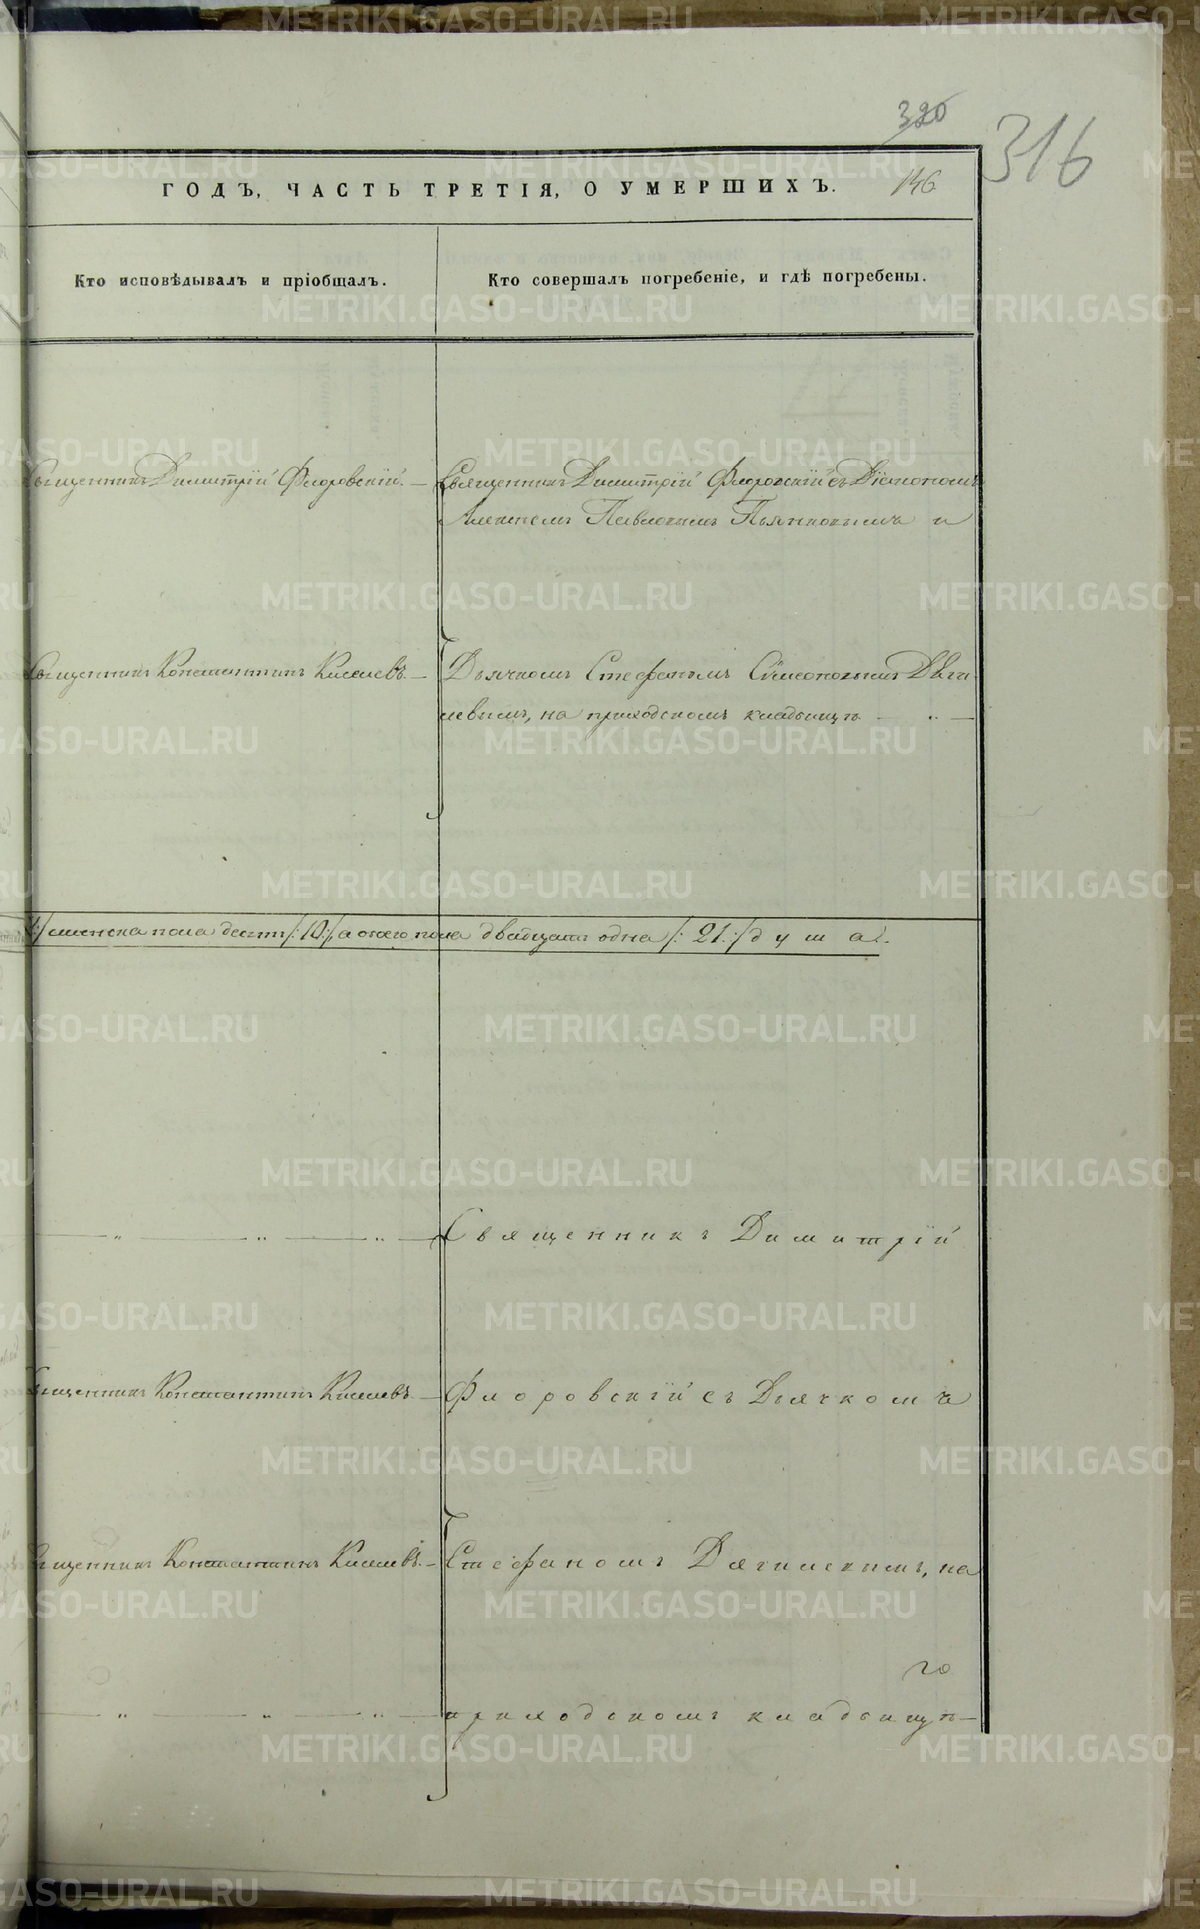 320
316
ГОДЪ, ЧАСТЬ ТРЕТІЯ, О УМЕРШИХЪ.
146
Кто исповѣдывалъ и пріобщалъ.
Кто совершалъ погребеніе, и гдѣ погребены.
Священникъ Димитрій Флоровскій. —
Священникъ Димитрій Флоровскій съ Діакономъ
Павловымъ Пьянковымъ и
Священникъ Константинъ Киселевъ. —
Дьячкомъ Стефаномъ Сѵмеоновымъ Дяги-
левымъ, на приходскомъ кладбищѣ — „ —
женска пола десять /:10:/, а обоего пола двадцать одна /: 21:/ душа.
— „ — „ — „ —
Священникъ Димитрій
Священникъ Константинъ Киселевъ —
Флоровскій съ Дьячкомъ
Священникъ Константинъ Киселевъ. —
Стефаномъ Дягилевымъ, на
— „ — „ — „ —
приходскомъ кладбищѣ —
METRIKI.GASO-URAL.RU